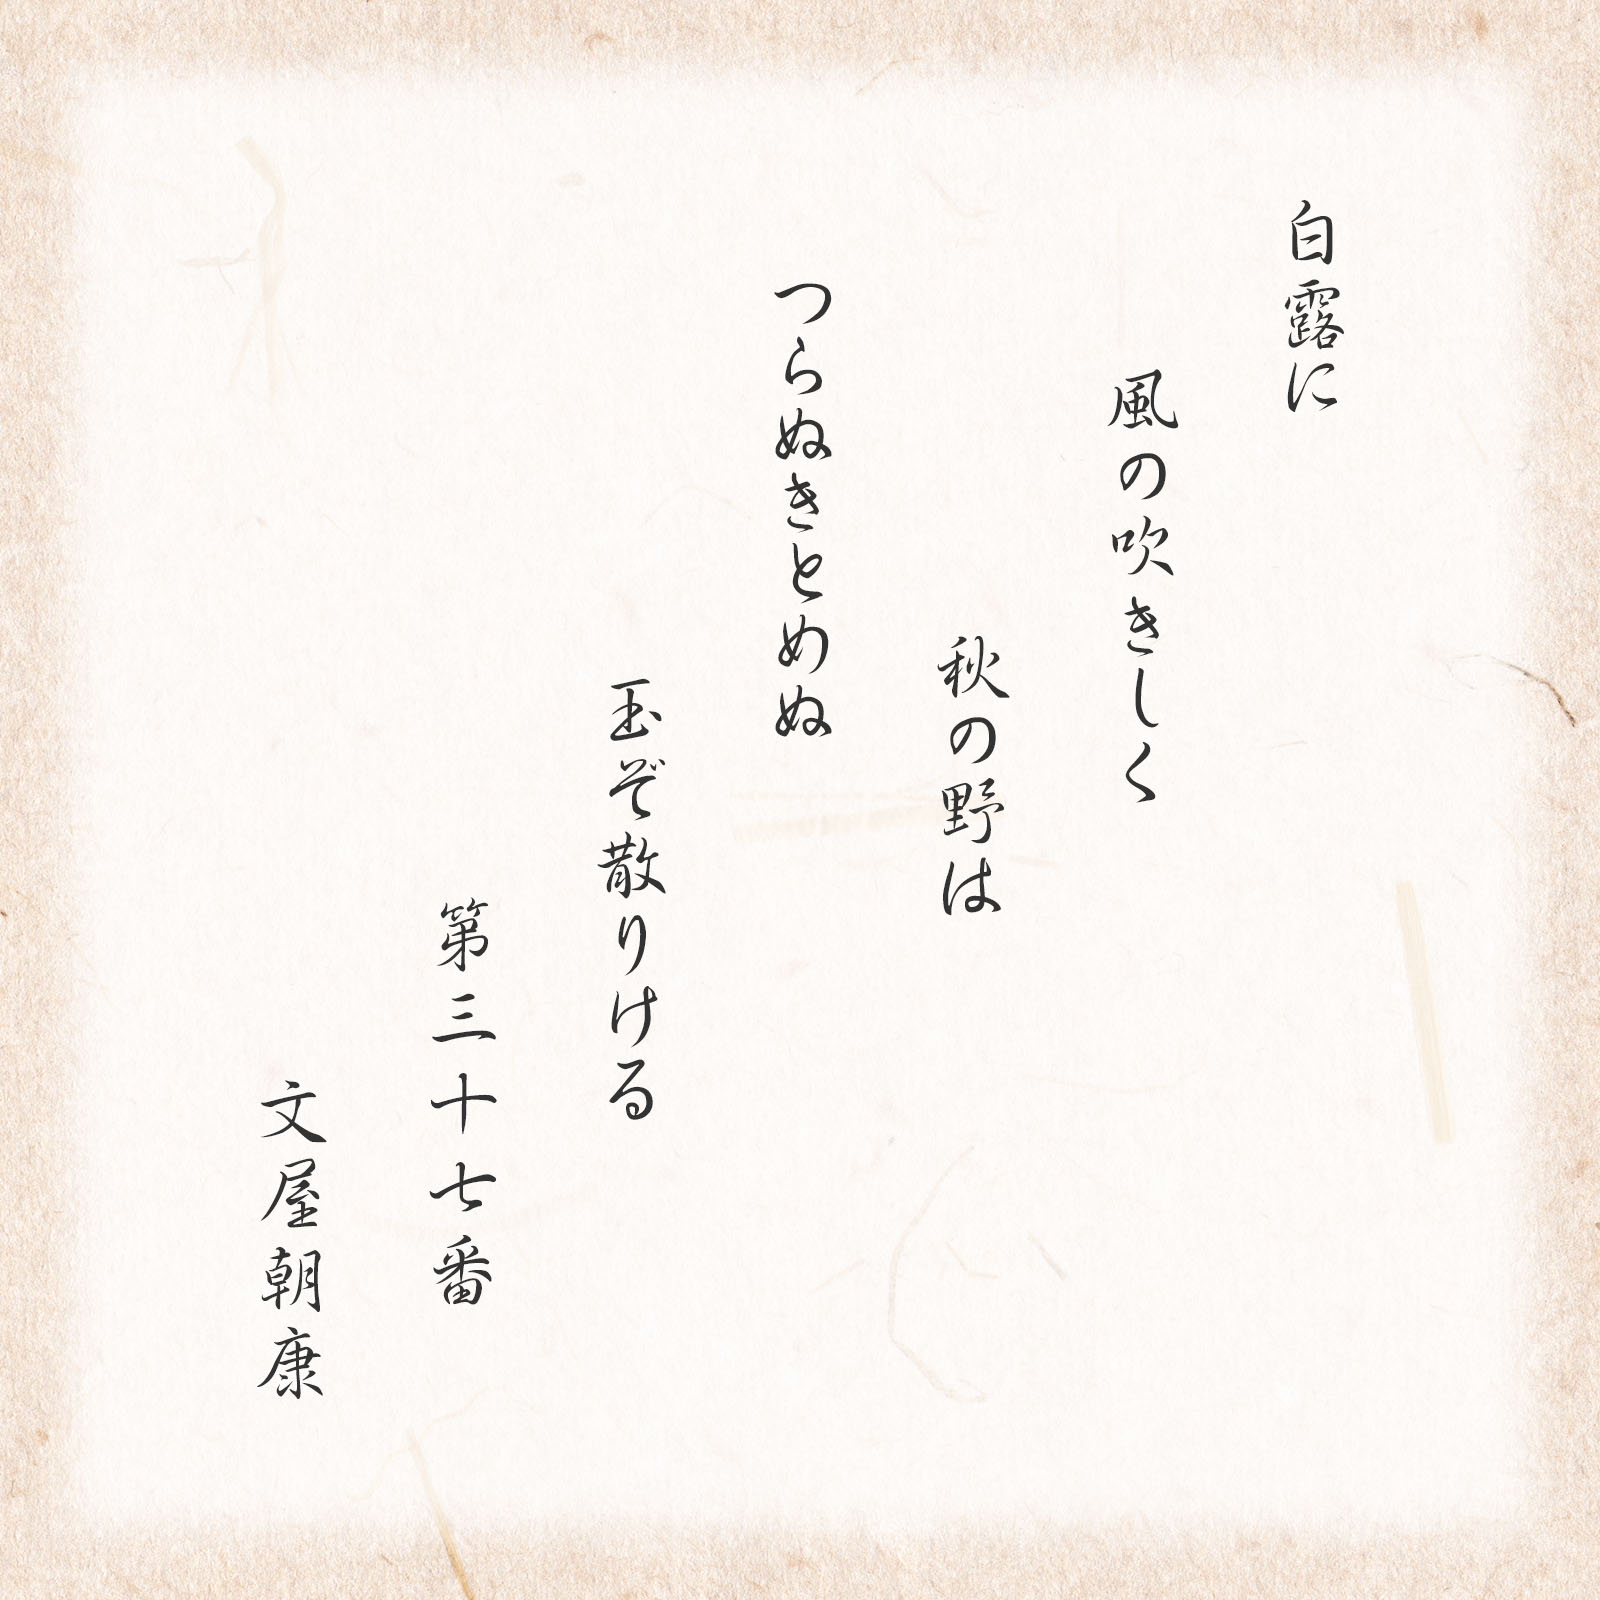 白露に
風の吹きしく
秋の野は
つらぬきとめぬ
玉ぞ散りける
第三十七番
文屋朝康